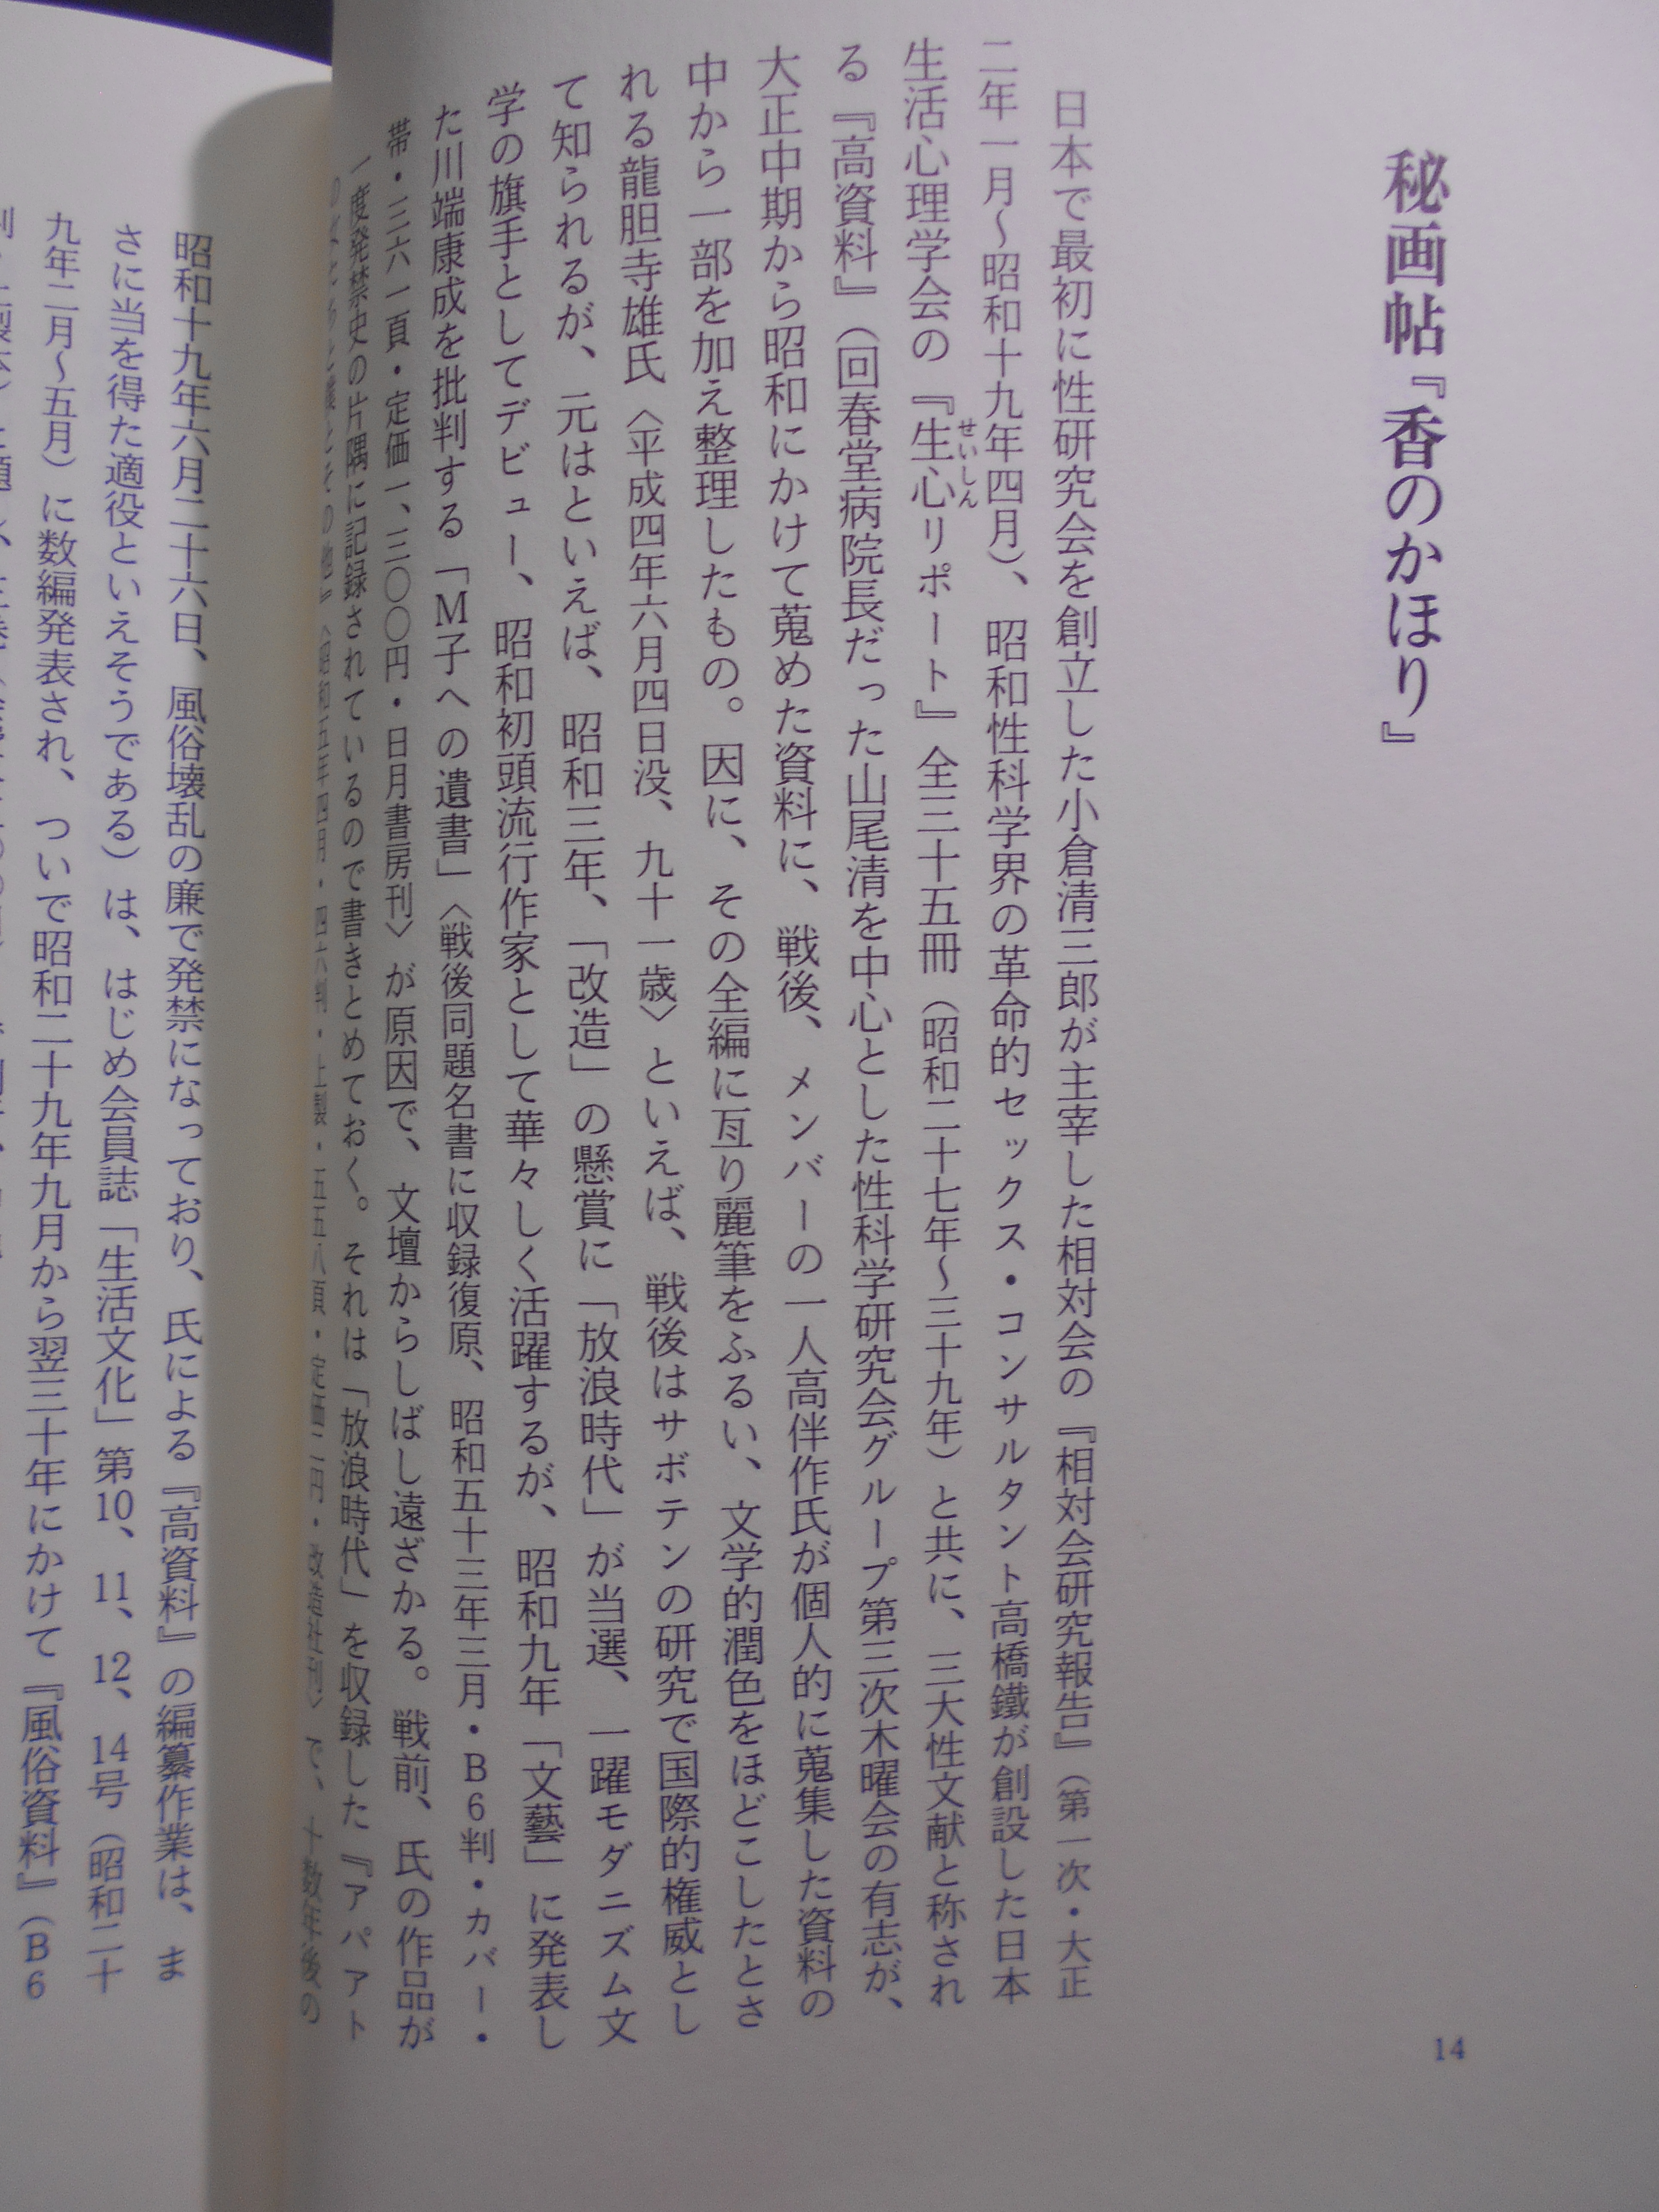 秘画帖『香のかほり』
日本で最初に性研究会を創立した小倉清三郎が主宰した相対会の『相対会研究報告』（第一次・大正
二年一月～昭和十九年四月）、昭和性科学界の革命的セックス・コンサルタント高橋鐵が創設した日本
生活心理学会の『生心リポート』全三十五冊（昭和二十七年～三十九年）と共に、三大性文献と称され
せいしん
る『高資料』（回春堂病院長だった山尾清を中心とした性科学研究会グループ第三次木曜会の有志が、
大正中期から昭和にかけて蒐めた資料に、戦後、メンバーの一人高伴作氏が個人的に蒐集した資料の
中から一部を加え整理したもの。因に、その全編に亙り麗筆をふるい、文学的潤色をほどこしたとさ
れる龍胆寺雄氏〈平成四年六月四日没、九十一歳〉といえば、戦後はサボテンの研究で国際的権威とし
て知られるが、元はといえば、昭和三年、「改造」の懸賞に「放浪時代」が当選、一躍モダニズム文
学の旗手としてデビュー、昭和初頭流行作家として華々しく活躍するが、昭和九年「文藝」に発表し
た川端康成を批判する「M子への遺書」〈戦後同題名書に収録復原、昭和五十三年三月・B6判・カバー・
帯・三六一頁・定価一、三〇〇円・日月書房刊〉が原因で、文壇からしばし遠ざかる。戦前、氏の作品が
一度発禁史の片隅に記録されているので書きとめておく。それは「放浪時代」を収録した『アパアト
昭和五年四月・四六判・上製・五五八頁・定価二円・改造社刊〉で、十数年後の
14
昭和十九年六月二十六日、風俗壊乱の廉で発禁になっており、氏による『高資料』の編纂作業は、ま
さに当を得た適役といえそうである）は、はじめ会員誌「生活文化」第10、11、12、14号（昭和二十
九年二月～五月）に数編発表され、ついで昭和二十九年九月から翌三十年にかけて『風俗資料』（B6